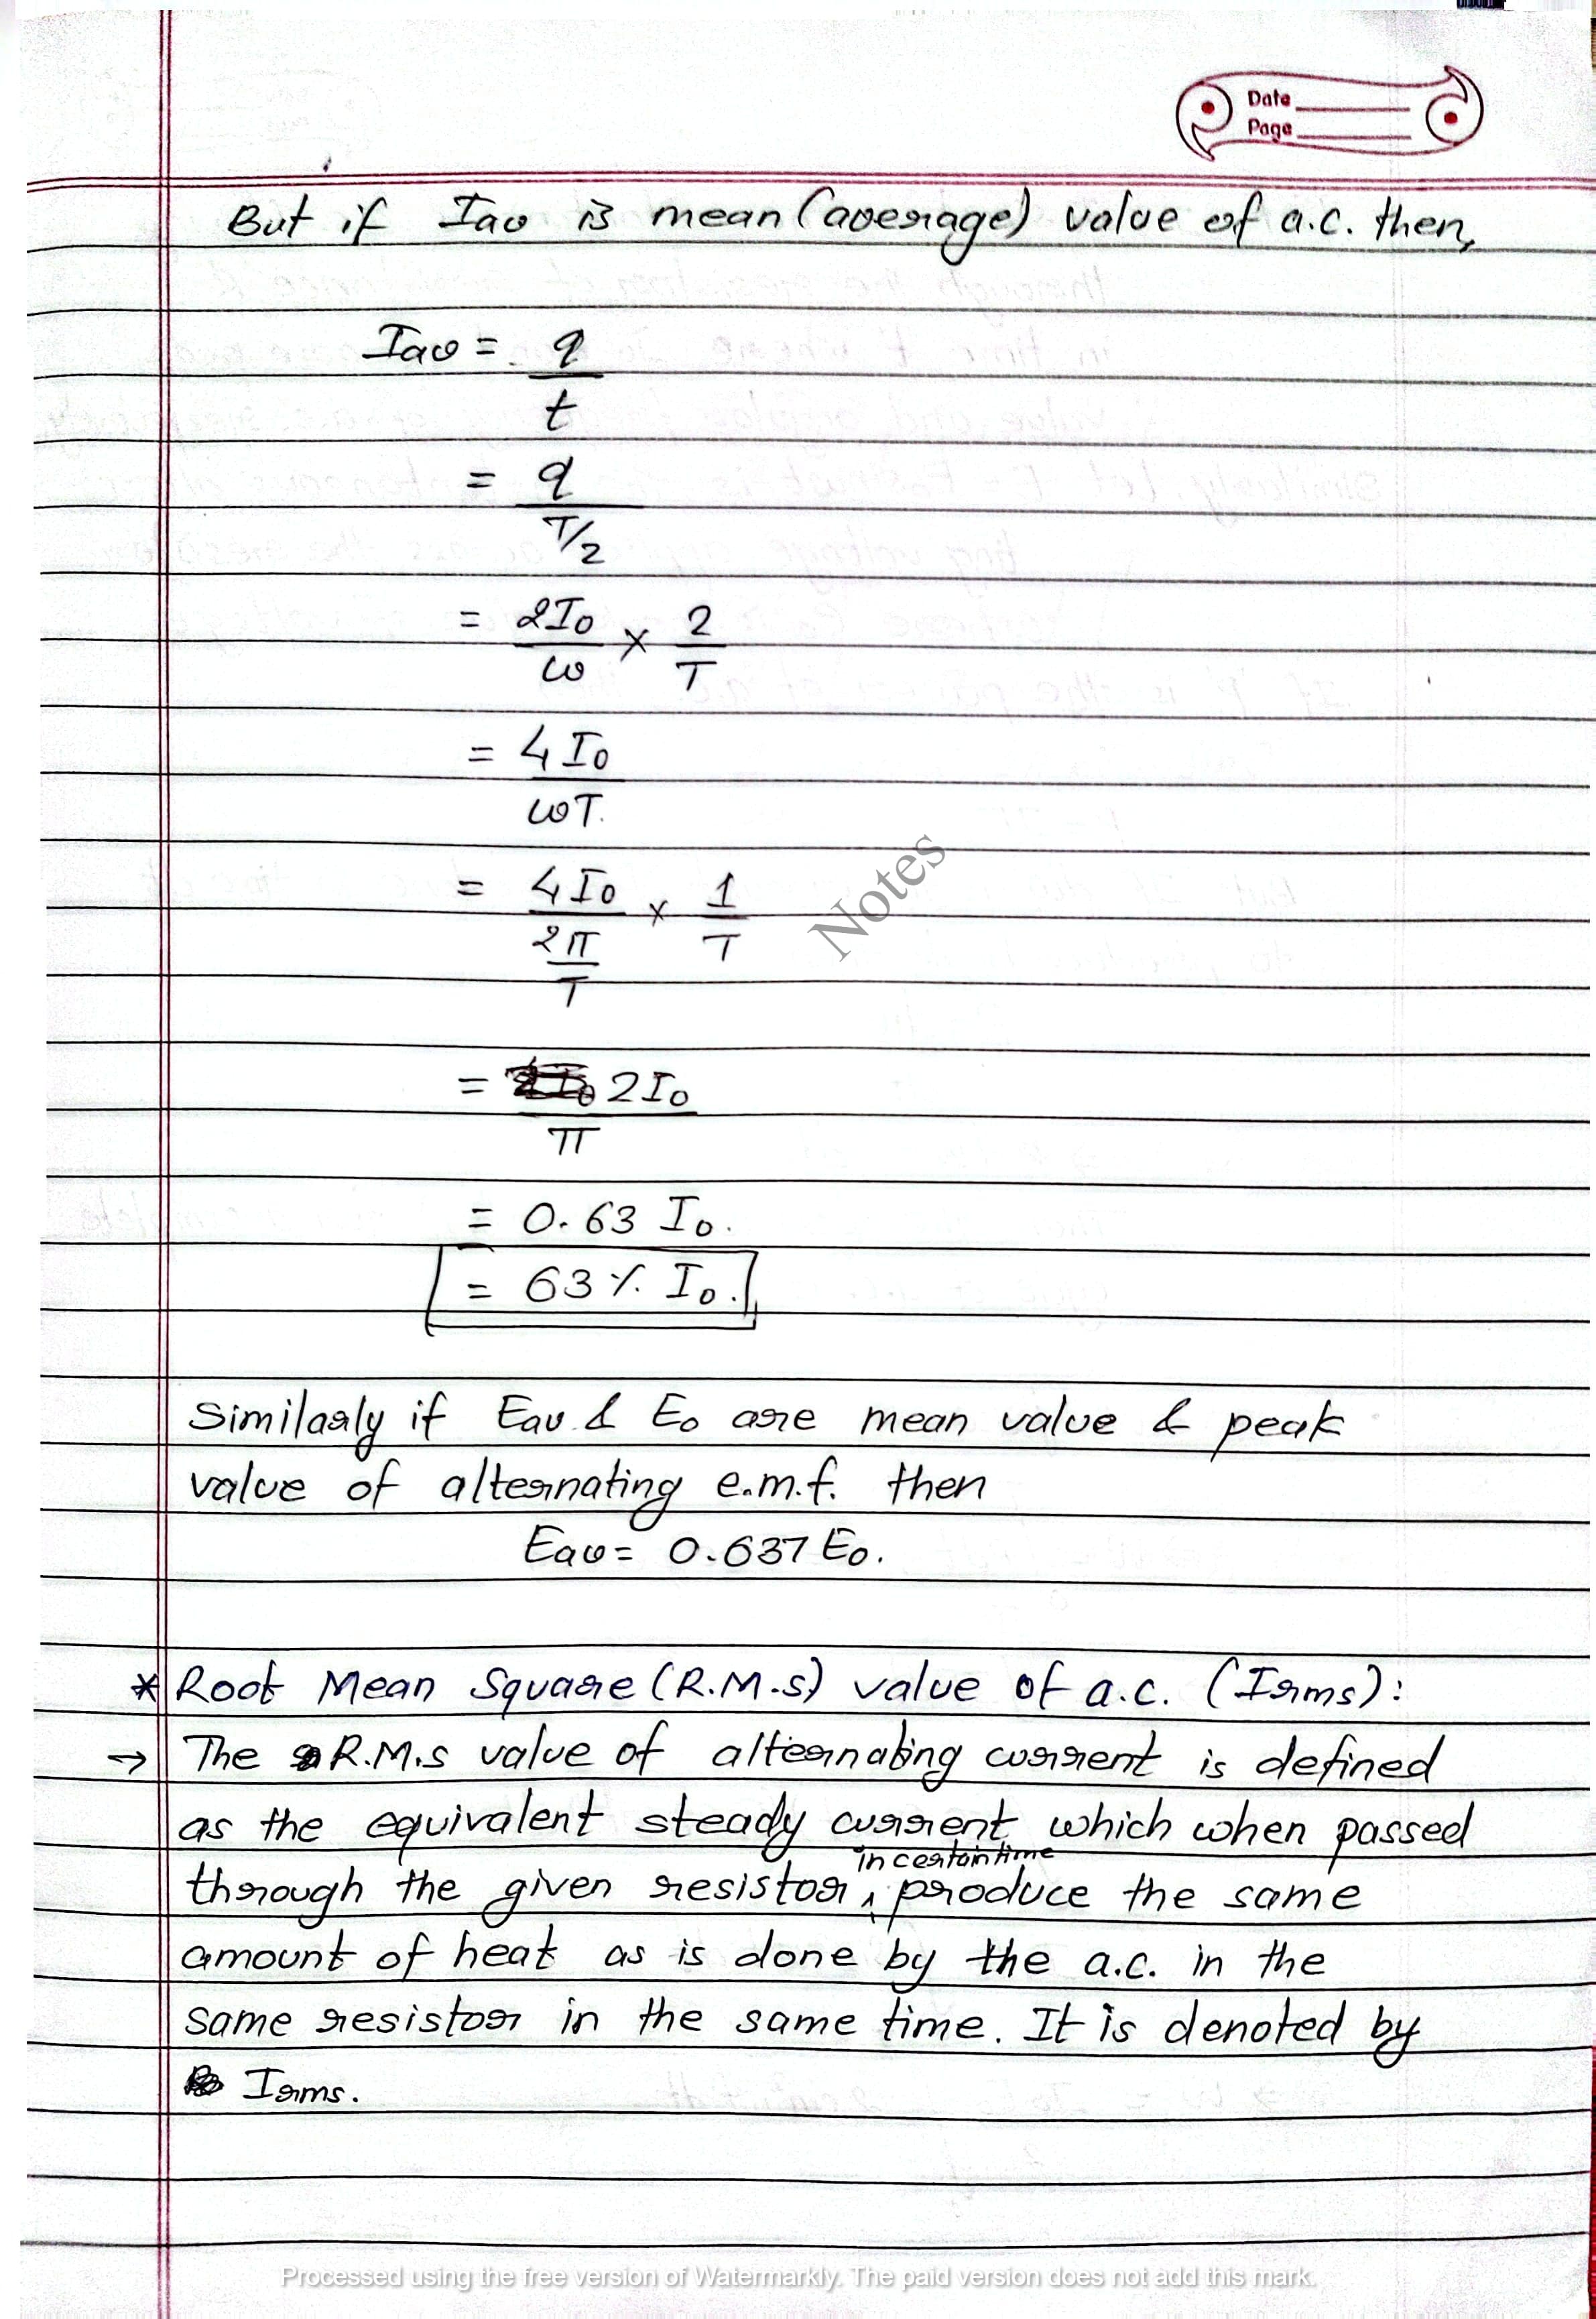 Date
Page
But if Iav is mean (average) value of a.c. then,
Iav = q/t
= q/(T/2)
= 2I0/ω × 2/T
= 4I0/ωT.
= 4I0/(2π/T) × 1/T
= 2I0/π
= 0.63 I0.
= 63% I0.
Similarly if Eav & E0 are mean value & peak
value of alternating e.m.f. then
Eav = 0.637 E0.
* Root Mean Square (R.M.S) value of a.c. (Irms):
→ The R.M.S value of alternating current is defined
as the equivalent steady current which when passed
in certain time
through the given resistor ‸ produce the same
amount of heat as is done by the a.c. in the
same resistor in the same time. It is denoted by
Irms.
Notes
Processed using the free version of Watermarkly. The paid version does not add this mark.